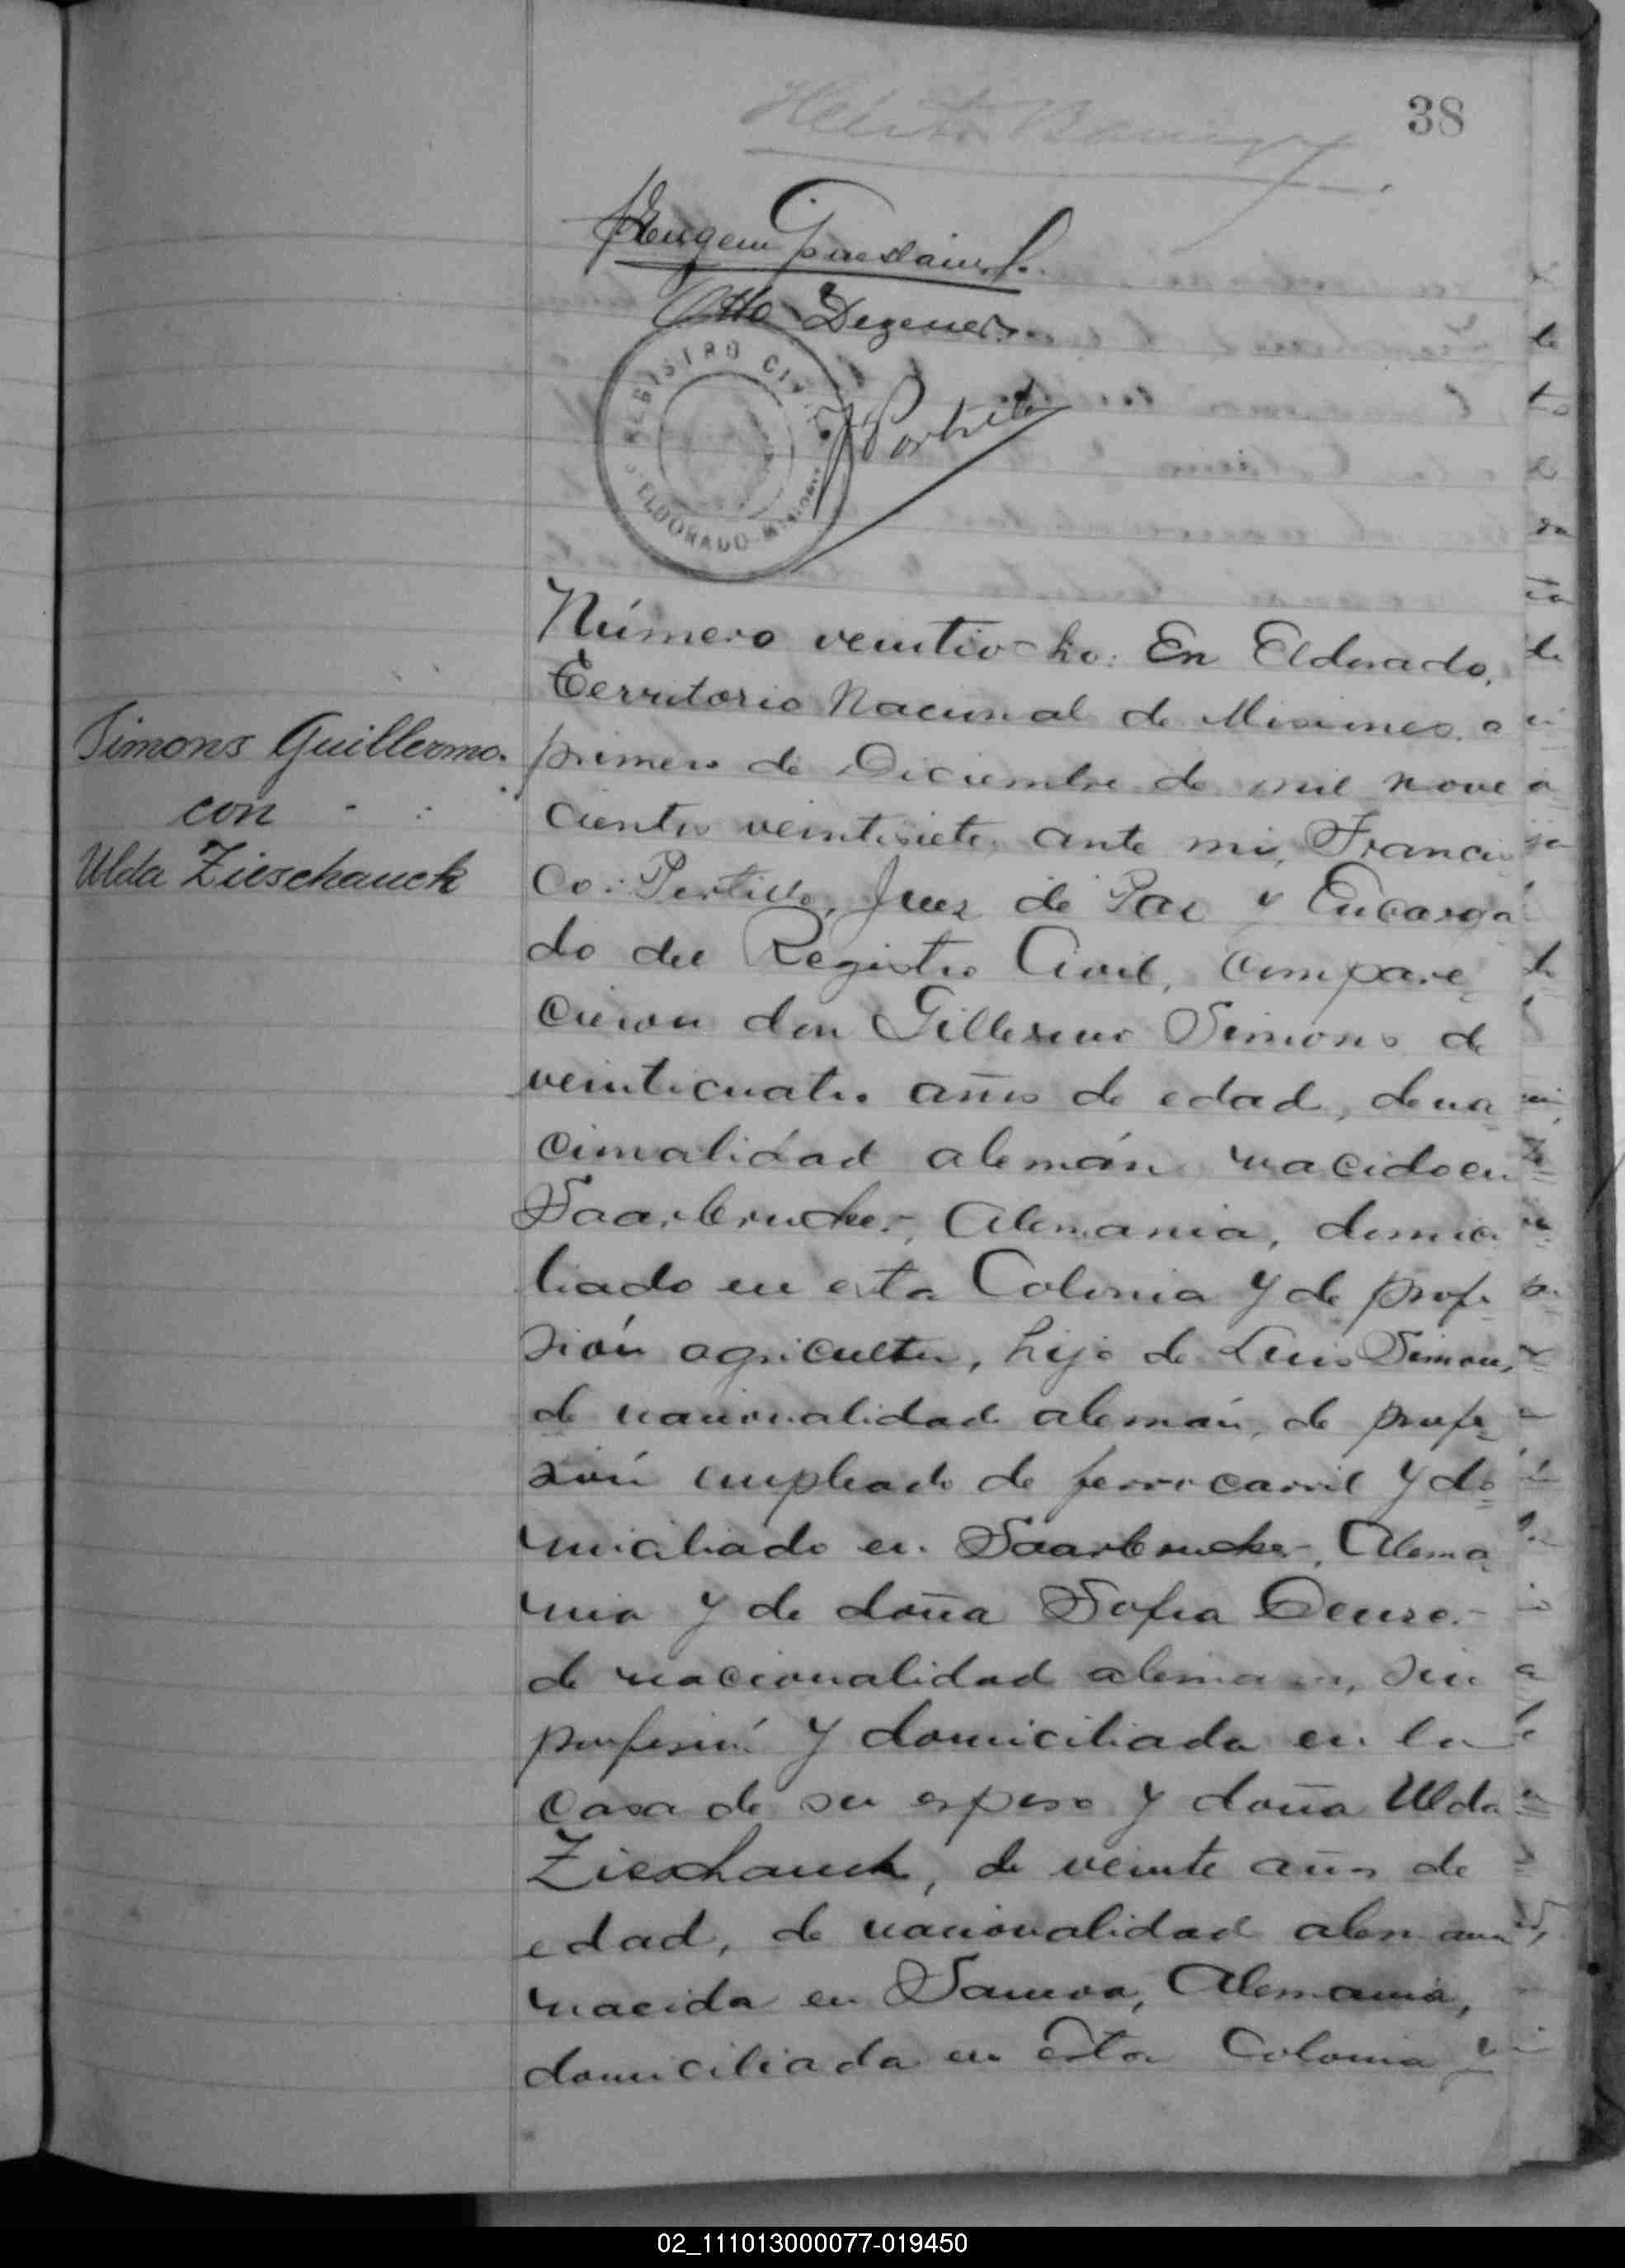 38
Otto Degener
REGISTRO CIVIL
ELDORADO - MISIONES
Número veintiocho: En Eldorado,
Territorio Nacional de Misiones, a
Simons Guillermo.
con
Ulda Zieschauck
primero de Diciembre de mil nove
cientos veintisiete, ante mi, Francis
co Portillo, Juez de Paz y Encarga
do del Registro Civil, compare
cieron don Gillermo Simons de
veinticuatro años de edad, de na
cionalidad alemán nacido en
Saarbrucken, Alemania, domici
liado en esta Colonia y de profe
sión agricultor, hijo de Luis Simons,
de nacionalidad alemán, de profe
sión empleado de ferrocarril y do
miciliado en Saarbrucken, Alema
nia y de doña Sofia
de nacionalidad alemana, sin
profesión y domiciliada en la
casa de su esposo y doña Ulda
Zieschauck, de veinte años de
edad, de nacionalidad alemana
nacida en Samoa, Alemania,
domiciliada en esta Colonia y
02_111013000077-019450